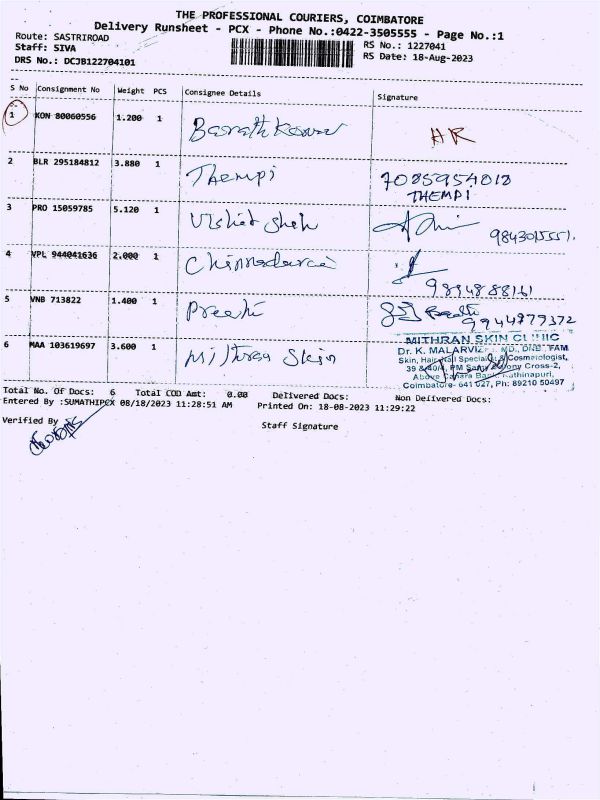 THE PROFESSIONAL COURIERS, COIMBATORE
Delivery Runsheet - PCX - Phone No.:0422-3505555 - Page No.:1
Route: SASTRIROAD
RS No.: 1227041
Staff: SIVA
RS Date: 18-Aug-2023
DRS No.: DCJB122704101
S No Consignment No Weight PCS Consignee Details Signature
1 KON 80060556 1.200 1 HR
2 BLR 295184812 3.880 1 Thempi 7085954018
THEMPI
3 PRO 15059785 5.120 1 9843015551.
4 VPL 944041636 2.000 1 Chinnadurai
5 VNB 713822 1.400 1 Preethi 9944979372
6 MAA 103619697 3.600 1 Mithran Skin
MITHRAN SKIN CLINIC
Dr. K. MALARVIZ MD., DNB., FAM
Skin, Hair, Nail Specialist & Cosmetologist,
39 & 40/4, PM Samy Colony Cross-2,
Above Canara Bank, Rathinapuri,
Coimbatore- 641 027, Ph: 89210 50497
Total No. Of Docs: 6 Total COD Amt: 0.00 Delivered Docs: Non Delivered Docs:
Entered By :SUMATHIPCX 08/18/2023 11:28:51 AM Printed On: 18-08-2023 11:29:22
Verified By
Staff Signature